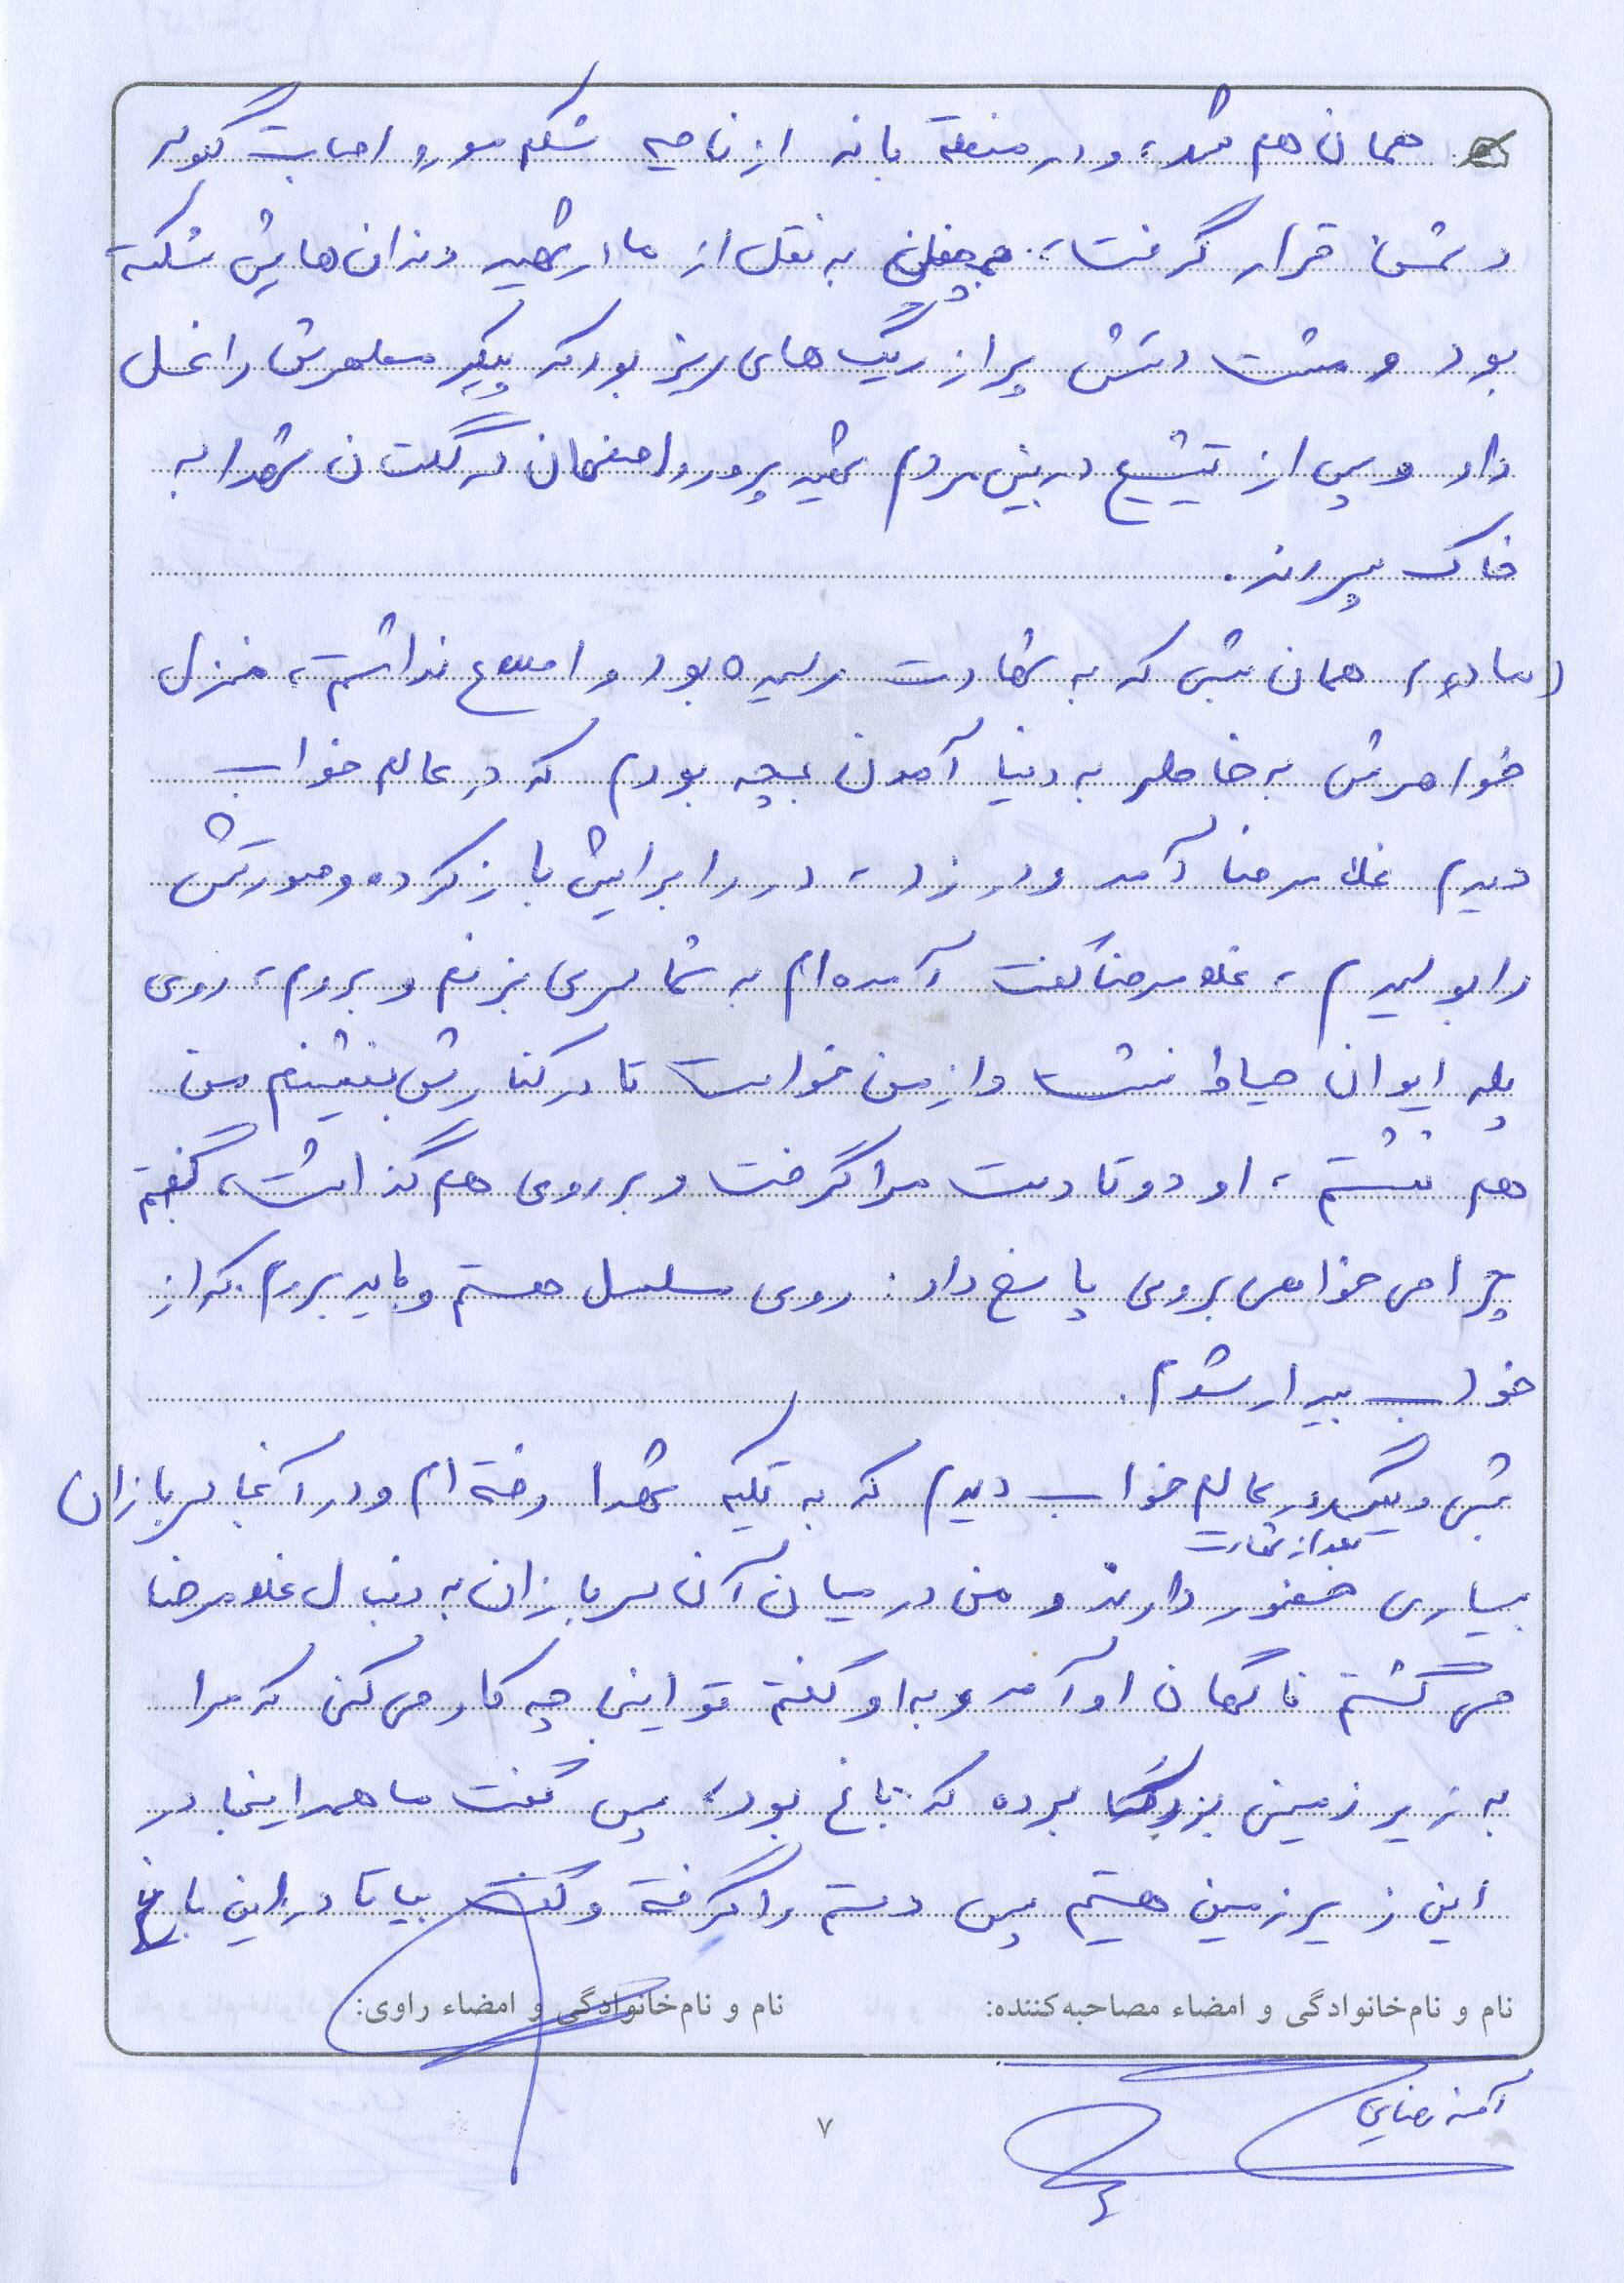 همان هم شد، و در منطقه بانه از ناحیه شکم مورد اصابت گلوله
دشمن قرار گرفت، همچنین به نقل از مادر شهید دندان‌هایش شکسته
بود و مشت دستش پر از ریگ‌های ریز بود که پیکر مطهرش را غسل
داد و پس از تشییع در بین مردم شهید پرور اصفهان در گلستان شهدا به
خاک سپردند.
(مادر)، همان شبی که به شهادت رسیده بود و اطلاع نداشتم، منزل
خواهرش به خاطر به دنیا آمدن بچه بودم که در عالم خواب
دیدم غلامرضا آمد و در زد، در را برایش باز کرده و صورتش
را بوسیدم، غلامرضا گفت آمده‌ام به شما سری بزنم و بروم، روی
پله ایوان حیاط نشست و از من خواست تا در کنارش بنشینم من
هم نشستم، او دو تا دست مرا گرفت و بر روی هم گذاشت، گفتم
چرا می‌خواهی بروی پاسخ داد: روی مسلسل هستم و باید بروم. که از
خواب بیدار شدم.
شبی دیگر در عالم خواب دیدم که به تکیه شهدا رفته‌ام و در آنجا سربازان
بعد از شهادت
بسیاری حضور دارند و من در میان آن سربازان به دنبال غلامرضا
می‌گشتم ناگهان او آمد و به او گفتم تو اینجا چه کار می‌کنی که مرا
به زیر زمینی بزرگ برده که باغ بود، پس گفت ما همه اینجا در
این زیر زمین هستیم پس دستم را گرفته و گفت بیا تا در این باغ
نام و نام‌خانوادگی و امضاء مصاحبه‌کننده: نام و نام‌خانوادگی و امضاء راوی:
آمنه رضایی
۷